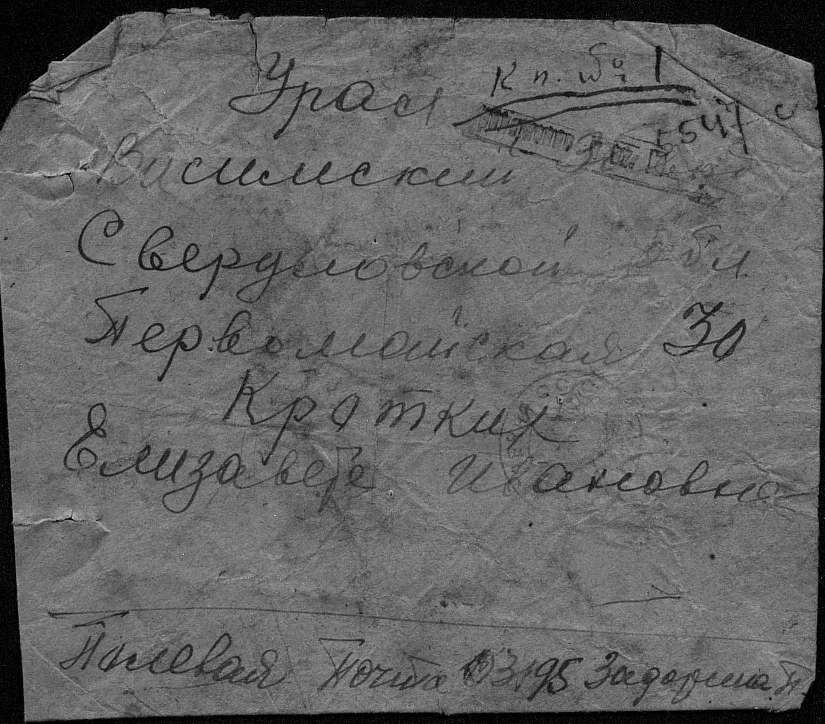 Урал
К п. № 1
5547
Висимский
Свердловской обл
Первомайская 30
Кротких
Елизавете Ивановне
Полевая почта 03195